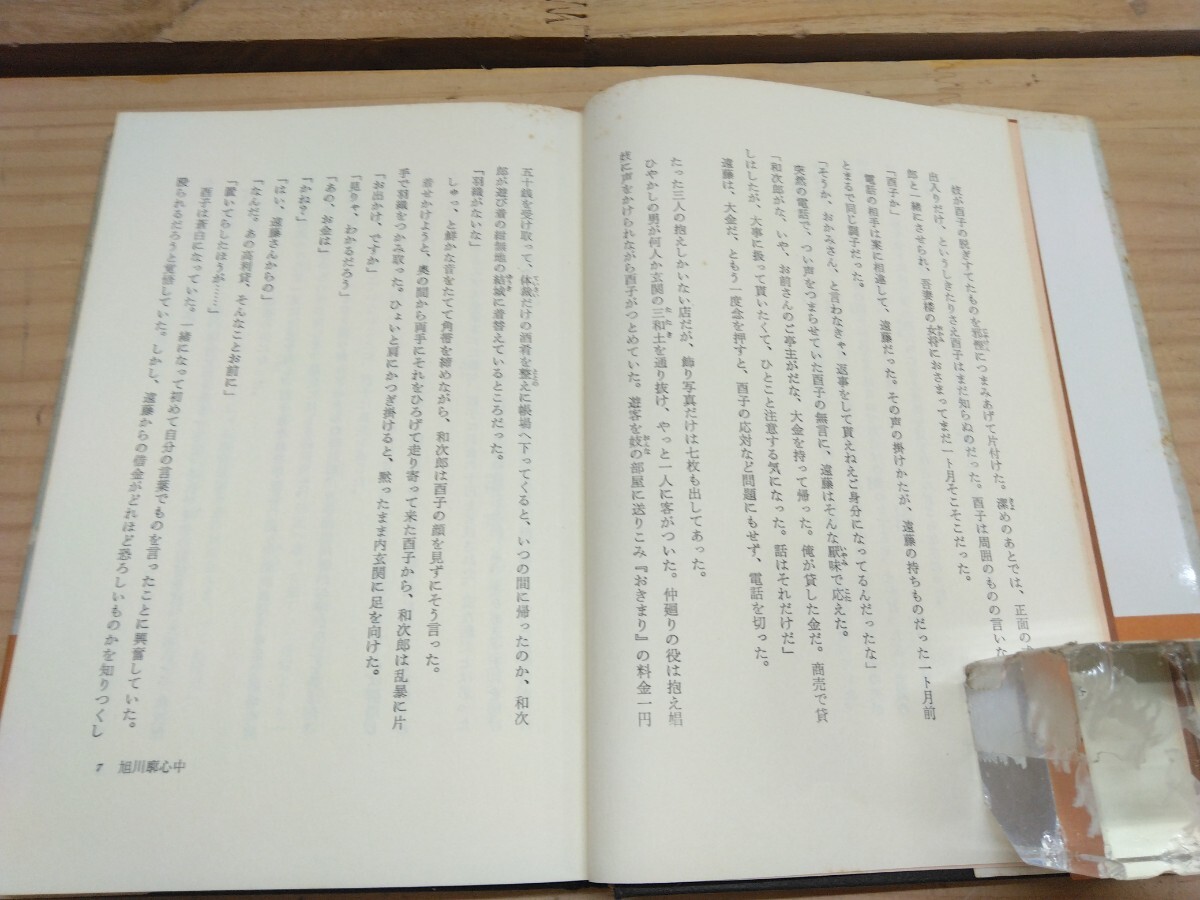 妓が酉子の脱ぎすてたものを邪慳につまみあげて片付けた。潔めのあとでは、正面の
出入りだけ、というしきたりさえ酉子はまだ知らぬのだった。酉子は周囲のものの言いな
郎と一緒にさせられ、吾妻楼の女将におさまってまだ一ト月そこそこだった。
「酉子か」
電話の相手は案に相違して、遠藤だった。その声の掛けかたが、遠藤の持ちものだった一ト月前
とまるで同じ調子だった。
「そうか、おかみさん、と言わなきゃ、返事をして貰えねえご身分になってるんだったな」
突然の電話で、つい声をつまらせていた酉子の無言に、遠藤はそんな厭味で応えた。
「和次郎がな、いや、お前さんのご亭主がだな、大金を持って帰った。俺が貸した金だ。商売で貸
しはしたが、大事に扱って貰いたくて、ひとこと注意する気になった。話はそれだけだ」
遠藤は、大金だ、ともう一度念を押すと、酉子の応対など問題にもせず、電話を切った。
たった三人の抱えしかいない店だが、飾り写真だけは七枚も出してあった。
ひやかしの男が何人か玄関の三和土を通り抜け、やっと一人に客がついた。仲廻りの役は抱え娼
妓に声をかけられながら酉子がつとめていた。遊客を妓の部屋に送りこみ『おきまり』の料金一円
五十銭を受け取って、体裁だけの酒肴を整えに帳場へ下ってくると、いつの間に帰ったのか、和次
郎が遊び着の紺無地の結城に着替えているところだった。
「羽織がないな」
しゅっ、と鮮かな音をたてて角帯を締めながら、和次郎は酉子の顔を見ずにそう言った。
着せかけようと、奥の間から両手にそれをひろげて走り寄って来た酉子から、和次郎は乱暴に片
手で羽織をつかみ取った。ひょいと肩にかつぎ掛けると、黙ったまま内玄関に足を向けた。
「お出かけ、ですか」
「見りゃ、わかるだろう」
「あの、お金は」
「かね?」
「はい、遠藤さんからの」
「なんだ。あの高利貸、そんなことお前に」
「置いてらしたほうが……」
酉子は蒼白になっていた。一緒になって初めて自分の言葉でものを言ったことに興奮していた。
殴られるだろうと覚悟していた。しかし、遠藤からの借金がどれほど恐ろしいものかを知りつくし
7 旭川廓心中